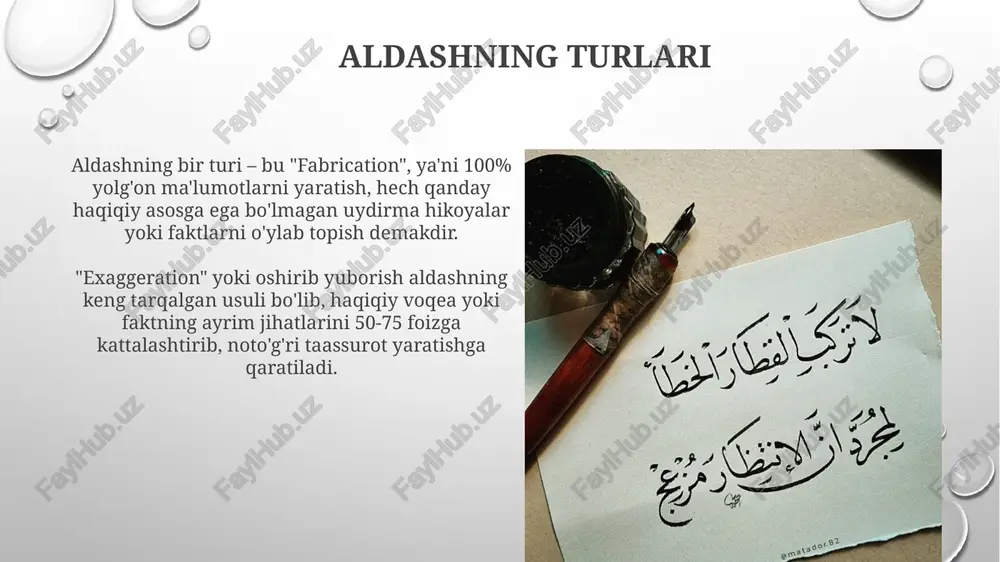 ALDASHNING TURLARI
Aldashning bir turi – bu "Fabrication", ya'ni 100%
yolg'on ma'lumotlarni yaratish, hech qanday
haqiqiy asosga ega bo'lmagan uydirma hikoyalar
yoki faktlarni o'ylab topish demakdir.
"Exaggeration" yoki oshirib yuborish aldashning
keng tarqalgan usuli bo'lib, haqiqiy voqea yoki
faktning ayrim jihatlarini 50-75 foizga
kattalashtirib, noto'g'ri taassurot yaratishga
qaratiladi.
لَا تَركَبِ الْقِطَارَ الْخَطَأ
لِمُجَرَّدِ أنَّ الإنتِظَارَ مُزْعِجْ
@matador.82
FaylHub.uz